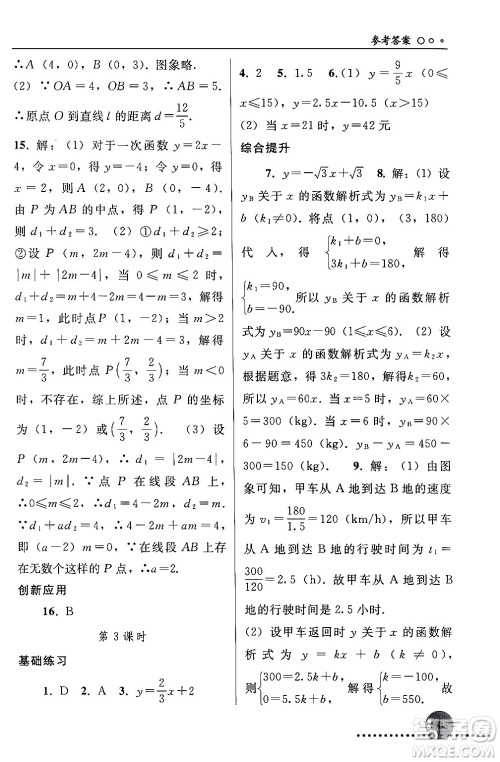 参考答案
∴A（4，0），B（3，0）。图象略.
（2）∵OA=4，OB=3，∴AB=5.∴
原点O到直线l的距离d=12/5.
15. 解：（1）对于一次函数y=2x-
4，令x=0，得y=-4，令y=0，得
x=2，则A（2，0），B（0，-4）.
由P为AB的中点，得P（1，-2），
则d₁+d₂=3.（2）①d₁+d₂≥2；
②设P（m，2m-4），∴d₁+d₂=
|m|+|2m-4|. 当0≤m≤2时，
d₁+d₂=m+4-2m=4-m=3，解得
m=1，此时点P（1，-2）. 当m>2
时，d₁+d₂=m+2m-4=3，解得
m=7/3，此时点P(7/3，2/3). 当m<0
时，不存在，综上所述，点P的坐标
为（1，-2）或(7/3，2/3).（3）设
P（m，2m-4），∴d₁=|2m-4|，
d₂=|m|. ∵点P在线段AB上，
∴0≤m≤2. ∴d₁=4-2m，d₂=m.
∵d₁+ad₂=4，∴4-2m+am=4，
即（a-2）m=0. ∵在线段AB上存
在无数个这样的P点，∴a=2.
创新应用
16. B
第3课时
基础练习
1. D 2. A 3. y=2/3x+2
4. 2 5. 1.5 6.（1）y=9/5x（0≤
x≤15），y=2.5x-10.5（x>15）
（2）当x=21时，y=42
综合提升
7. y=-√3x+√3 8. 解：（1）设
yB关于x的函数解析式为yB=k₁x+
b（k₁≠0）. 将点（1，0），（3，180）
代人，得{k₁+b=0，3k₁+b=180. 解得
{k₁=90，b=-90. 所以yB关于x的函数解析
式为yB=90x-90（1≤x≤6）.（2）设
yA关于x的函数解析式为yA=k₂x，
根据题意，得3k₂=180，解得k₂=
60，所以yA=60x. 当x=5时，yA=
60×5=300（kg）. 当x=6时，yB=
90×6-90=450（kg）. 450-300=
150（kg）. 9. 解：（1）由图
象可知，甲车从A地到达B地的速度
为v₁=180/1.5=120（km/h），所以甲车
从A地到达B地的行驶时间t₁=
300/120=2.5（h）. 故甲车从A地到达B
地的行驶时间是2.5小时.
（2）设甲车返回时y关于x的函数解
析式为y=kx+b（k≠0），则
{300=2.5k+b，0=5.5k+b. 所以{k=-100，b=550.